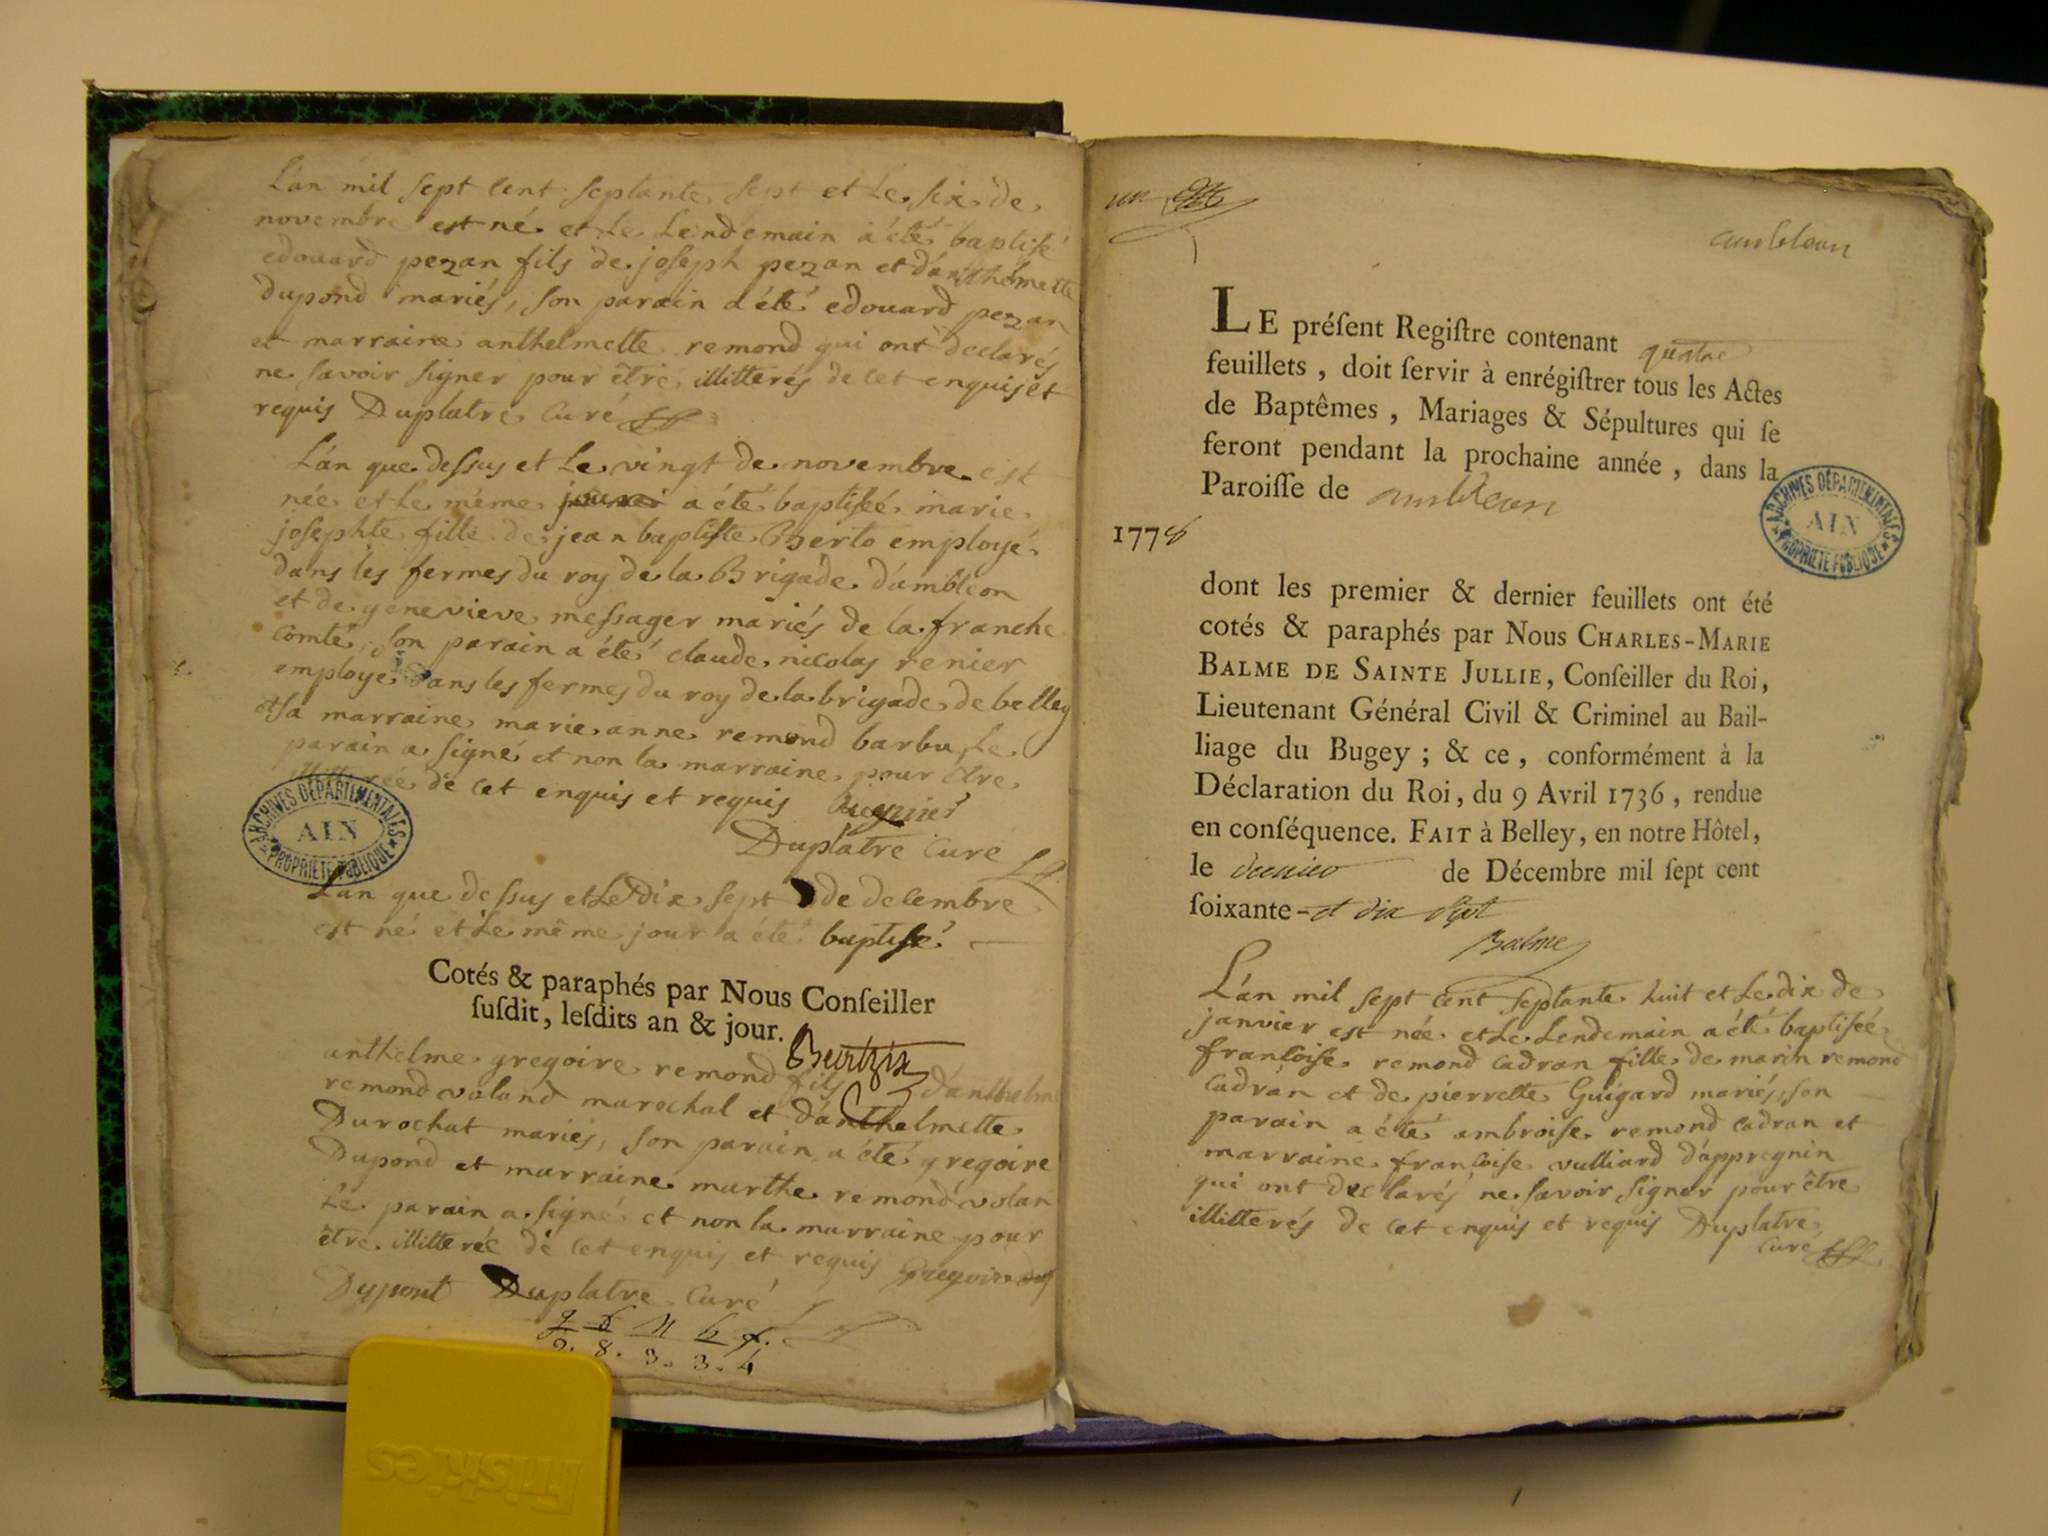 L'an mil sept cent septante sept et le six de
novembre est né et le lendemain a été baptisé
edouard pezan fils de joseph pezan et d'anthelmette
dupond mariés, son parain a été edouard pezan
et marraine anthelmette remond qui ont declarés
ne savoir signer pour être illitterés de cet enquis et
requis Duplatre Curé
L'an que dessus et le vingt de novembre est
née et le même a été baptiseé marie
josephte fille de jean baptiste Berto employé
dans les fermes du roy de la Brigade d'ambléon
et de genevieve messager mariés de la franche
comté, son parain a été claude nicolas renier
employé dans les fermes du roy de la brigade de belley
et sa marraine marie anne remond barbu, le
parain a signé et non la marraine pour être
de cet enquis et requis
Duplatre Curé
ARCHIVES DÉPARTEMENTALES
AIN
PROPRIÉTÉ PUBLIQUE
L'an que dessus et le dix sept de decembre
est né et le même jour a été baptisé
Cotés & paraphés par Nous Conſeiller
ſuſdit, leſdits an & jour.
anthelme gregoire remond fils d'anthelme
remond voland marechal et d'anthelmette
Durochat mariés, son parain a été gregoire
Dupond et marraine marthe remond volan
le parain a signé et non la marraine pour
être illitterée de cet enquis et requis
Dupont Duplatre Curé
friskies
un
ambleon
LE préſent Regiſtre contenant quatre
feuillets, doit ſervir à enrégiſtrer tous les Actes
de Baptêmes, Mariages & Sépultures qui ſe
feront pendant la prochaine année, dans la
Paroiſſe de ambleon
1778
ARCHIVES DÉPARTEMENTALES
AIN
PROPRIÉTÉ PUBLIQUE
dont les premier & dernier feuillets ont été
cotés & paraphés par Nous CHARLES-MARIE
BALME DE SAINTE JULLIE, Conſeiller du Roi,
Lieutenant Général Civil & Criminel au Bail-
liage du Bugey ; & ce, conformément à la
Déclaration du Roi, du 9 Avril 1736, rendue
en conſéquence. FAIT à Belley, en notre Hôtel,
le dernier de Décembre mil ſept cent
ſoixante-et dix sept
Balme
L'an mil sept cent septante huit et le dix de
janvier est née et le lendemain a été baptiseé
francoise remond cadran fille de marin remond
cadran et de pierrette Guigard mariés, son
parain a été ambroise remond cadran et
marraine francoise vulliard d'appregnin
qui ont declarés ne savoir signer pour être
illitterés de cet enquis et requis Duplatre
Curé